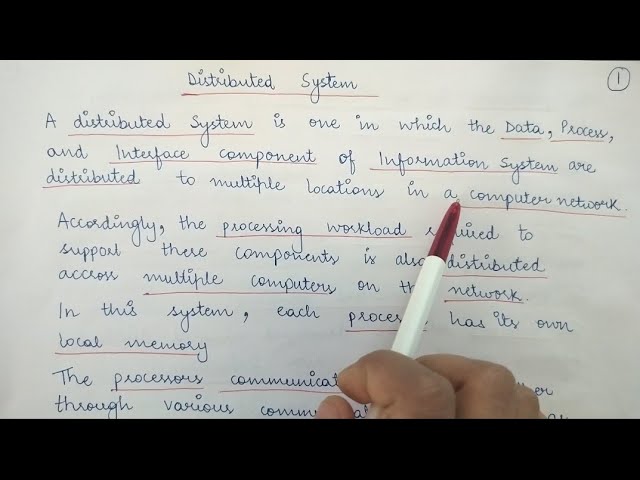 Distributed System
1
A distributed System is one in which the Data, Process,
and Interface component of Information System are
distributed to multiple locations in a computer network.
Accordingly, the processing workload required to
support these components is also distributed
accross multiple computers on the network.
In this system, each has its own
local memory
The processors
through various